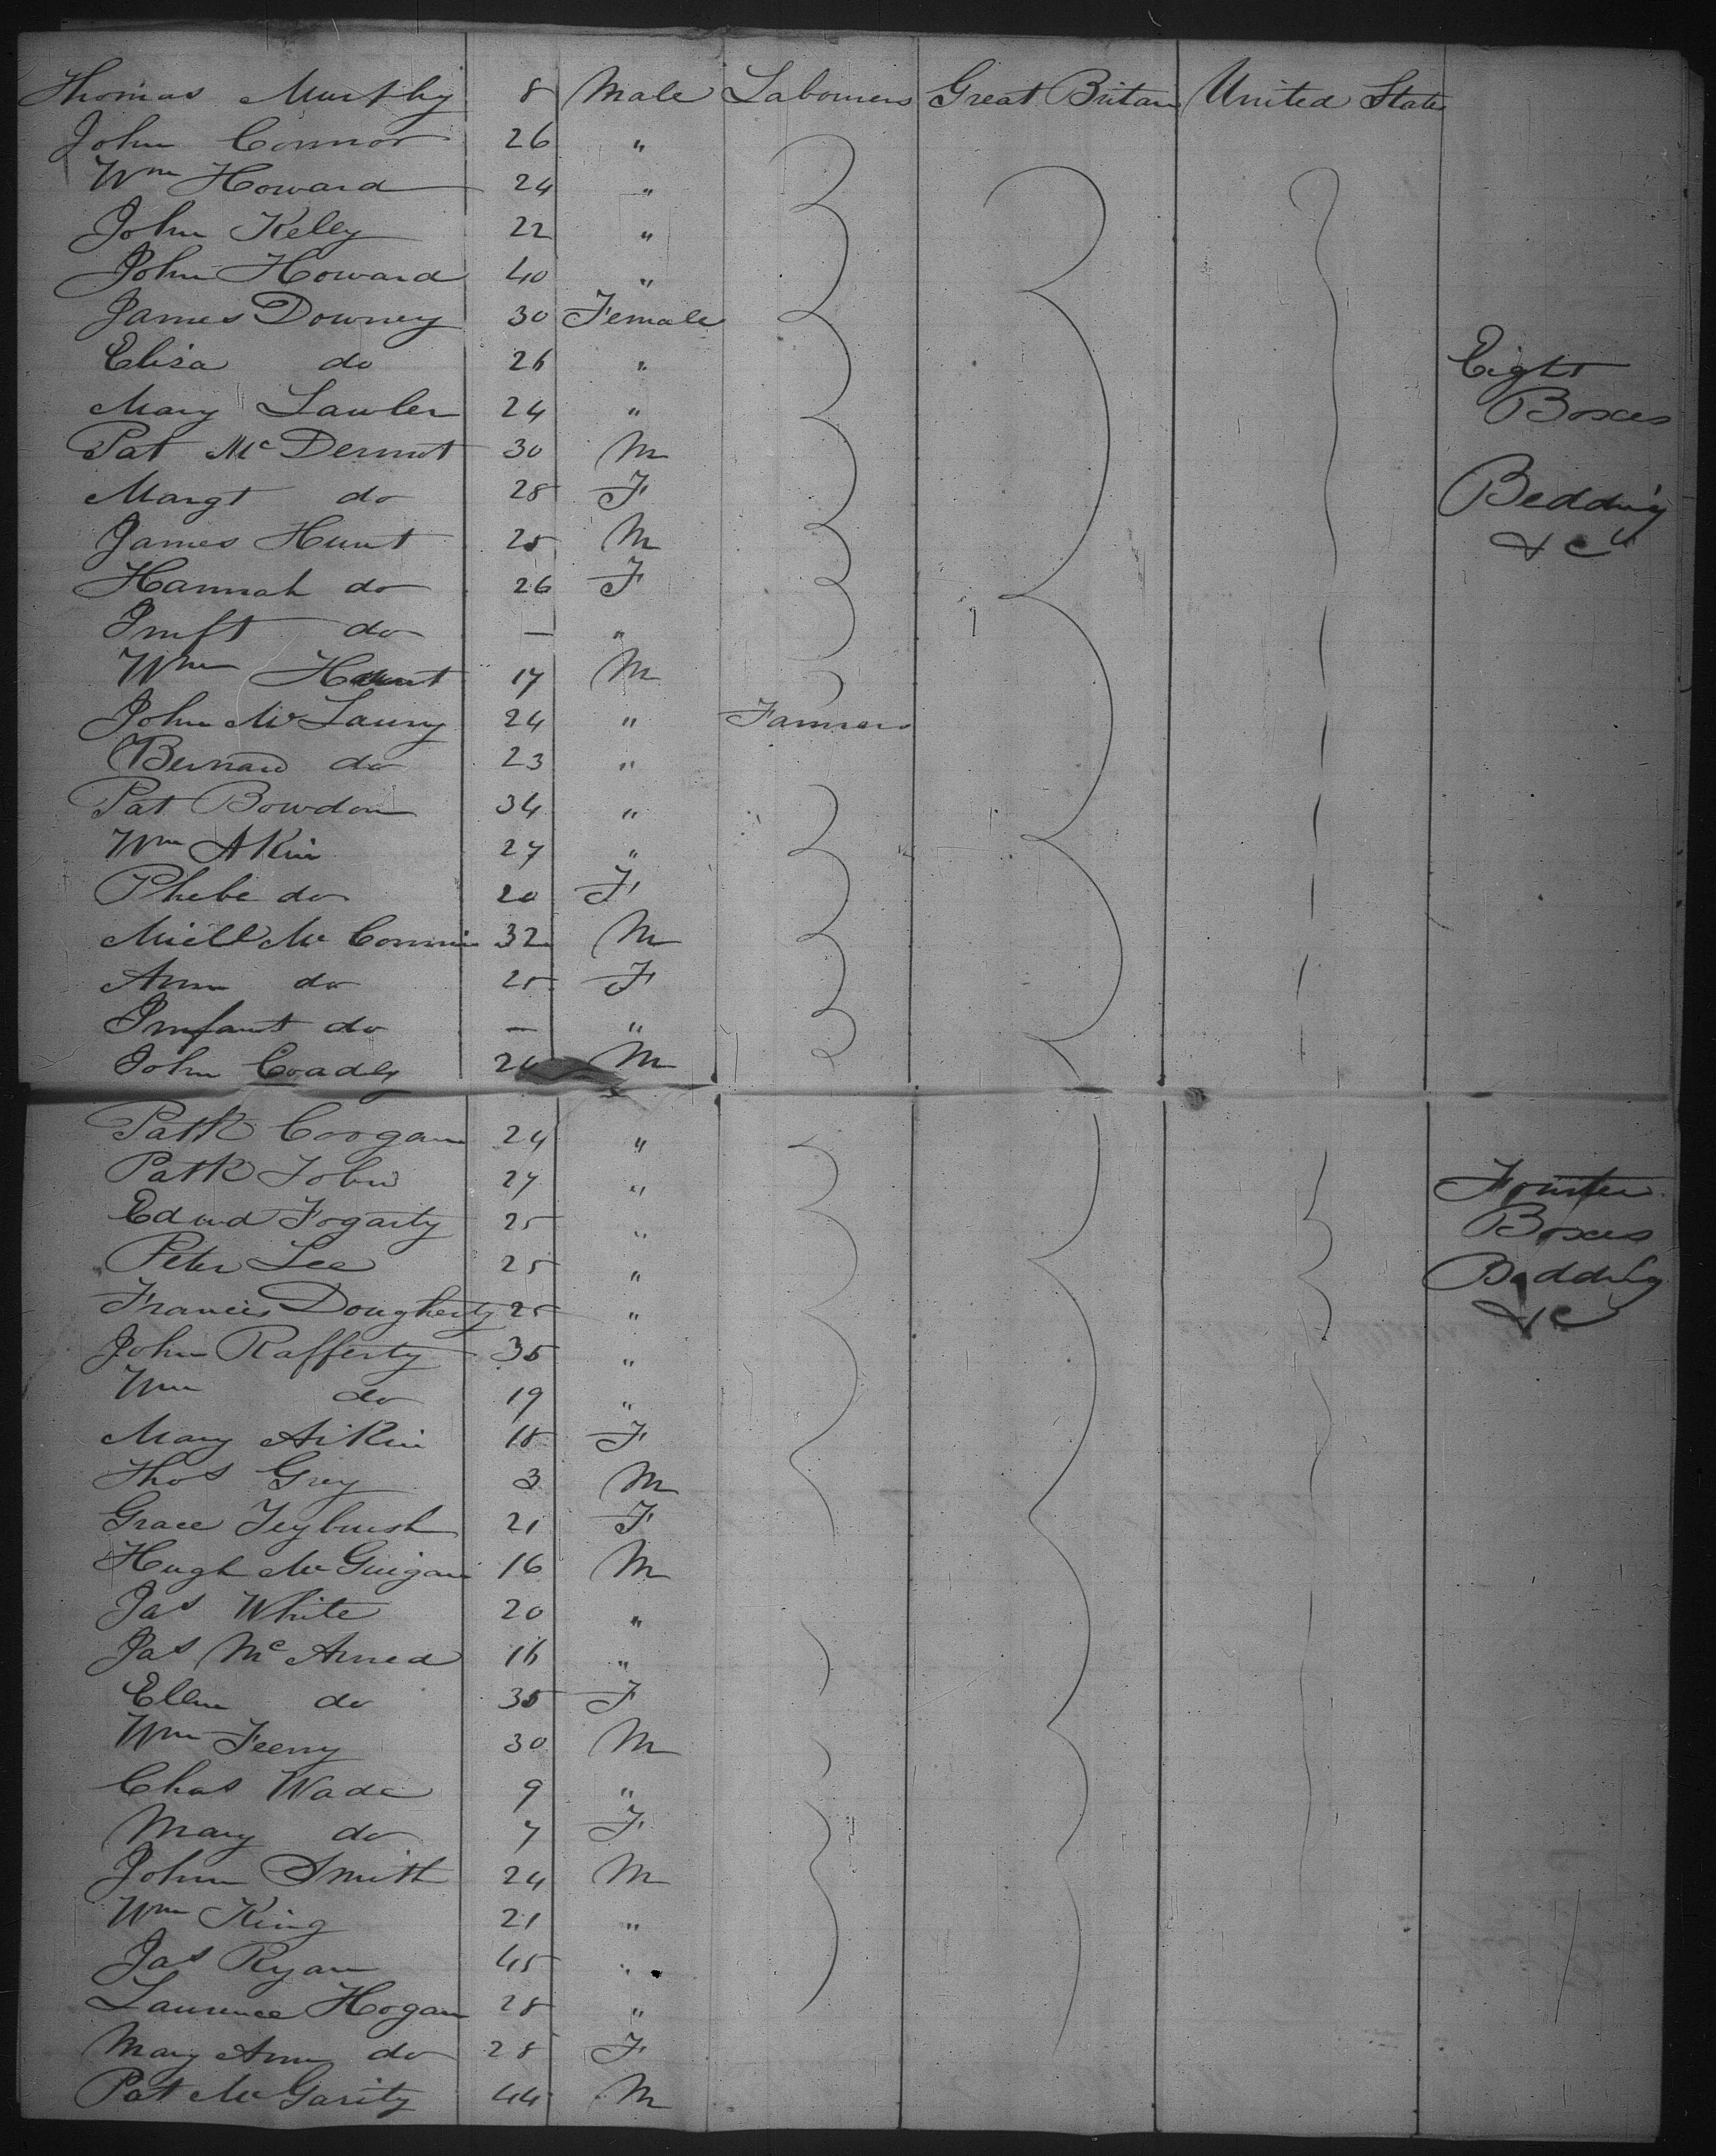 Thomas Murthy 8 Male Labourers Great Britain United State
John Connor 26 "
Wm Howard 24 "
John Kelly 22 "
John Howard 40 "
James Downey 30 Female
Elisa do 26 " Eight
Mary Lawler 24 " Boxes
Pat McDermot 30 M
Margt do 28 F Bedding
James Hunt 28 M &c
Hannah do 26 F
Imft do — "
Wm Hunt 17 M
John McLauny 24 " Farmers
Bernard do 23 "
Pat Bowdon 34 "
Wm Akin 27 "
Phebe do 20 F
Miell McConnin 32 M
Ann do 25 F
Imfant do — "
John Coady 20 M
Patk Coogan 24 "
Patk Tobin 27 " Fourten
Edwd Fogarty 25 " Boxes
Peter Lee 25 " Bedding
Francis Dougherty 25 " &c
John Rafferty 35 "
Wm do 19 "
Mary Aikin 18 F
Thos Grey 3 M
Grace 21 F
Hugh McGuigan 16 M
Jas White 20 "
Jas McArned 16 "
Ellen do 35 F
Wm Feeny 30 M
Chas Wade 9 "
Mary do 7 F
John Smith 24 M
Wm King 21 "
Jas Ryan 45 "
Laurence Hogan 28 "
Mary Ann do 28 F
Pat McGarity 44 M